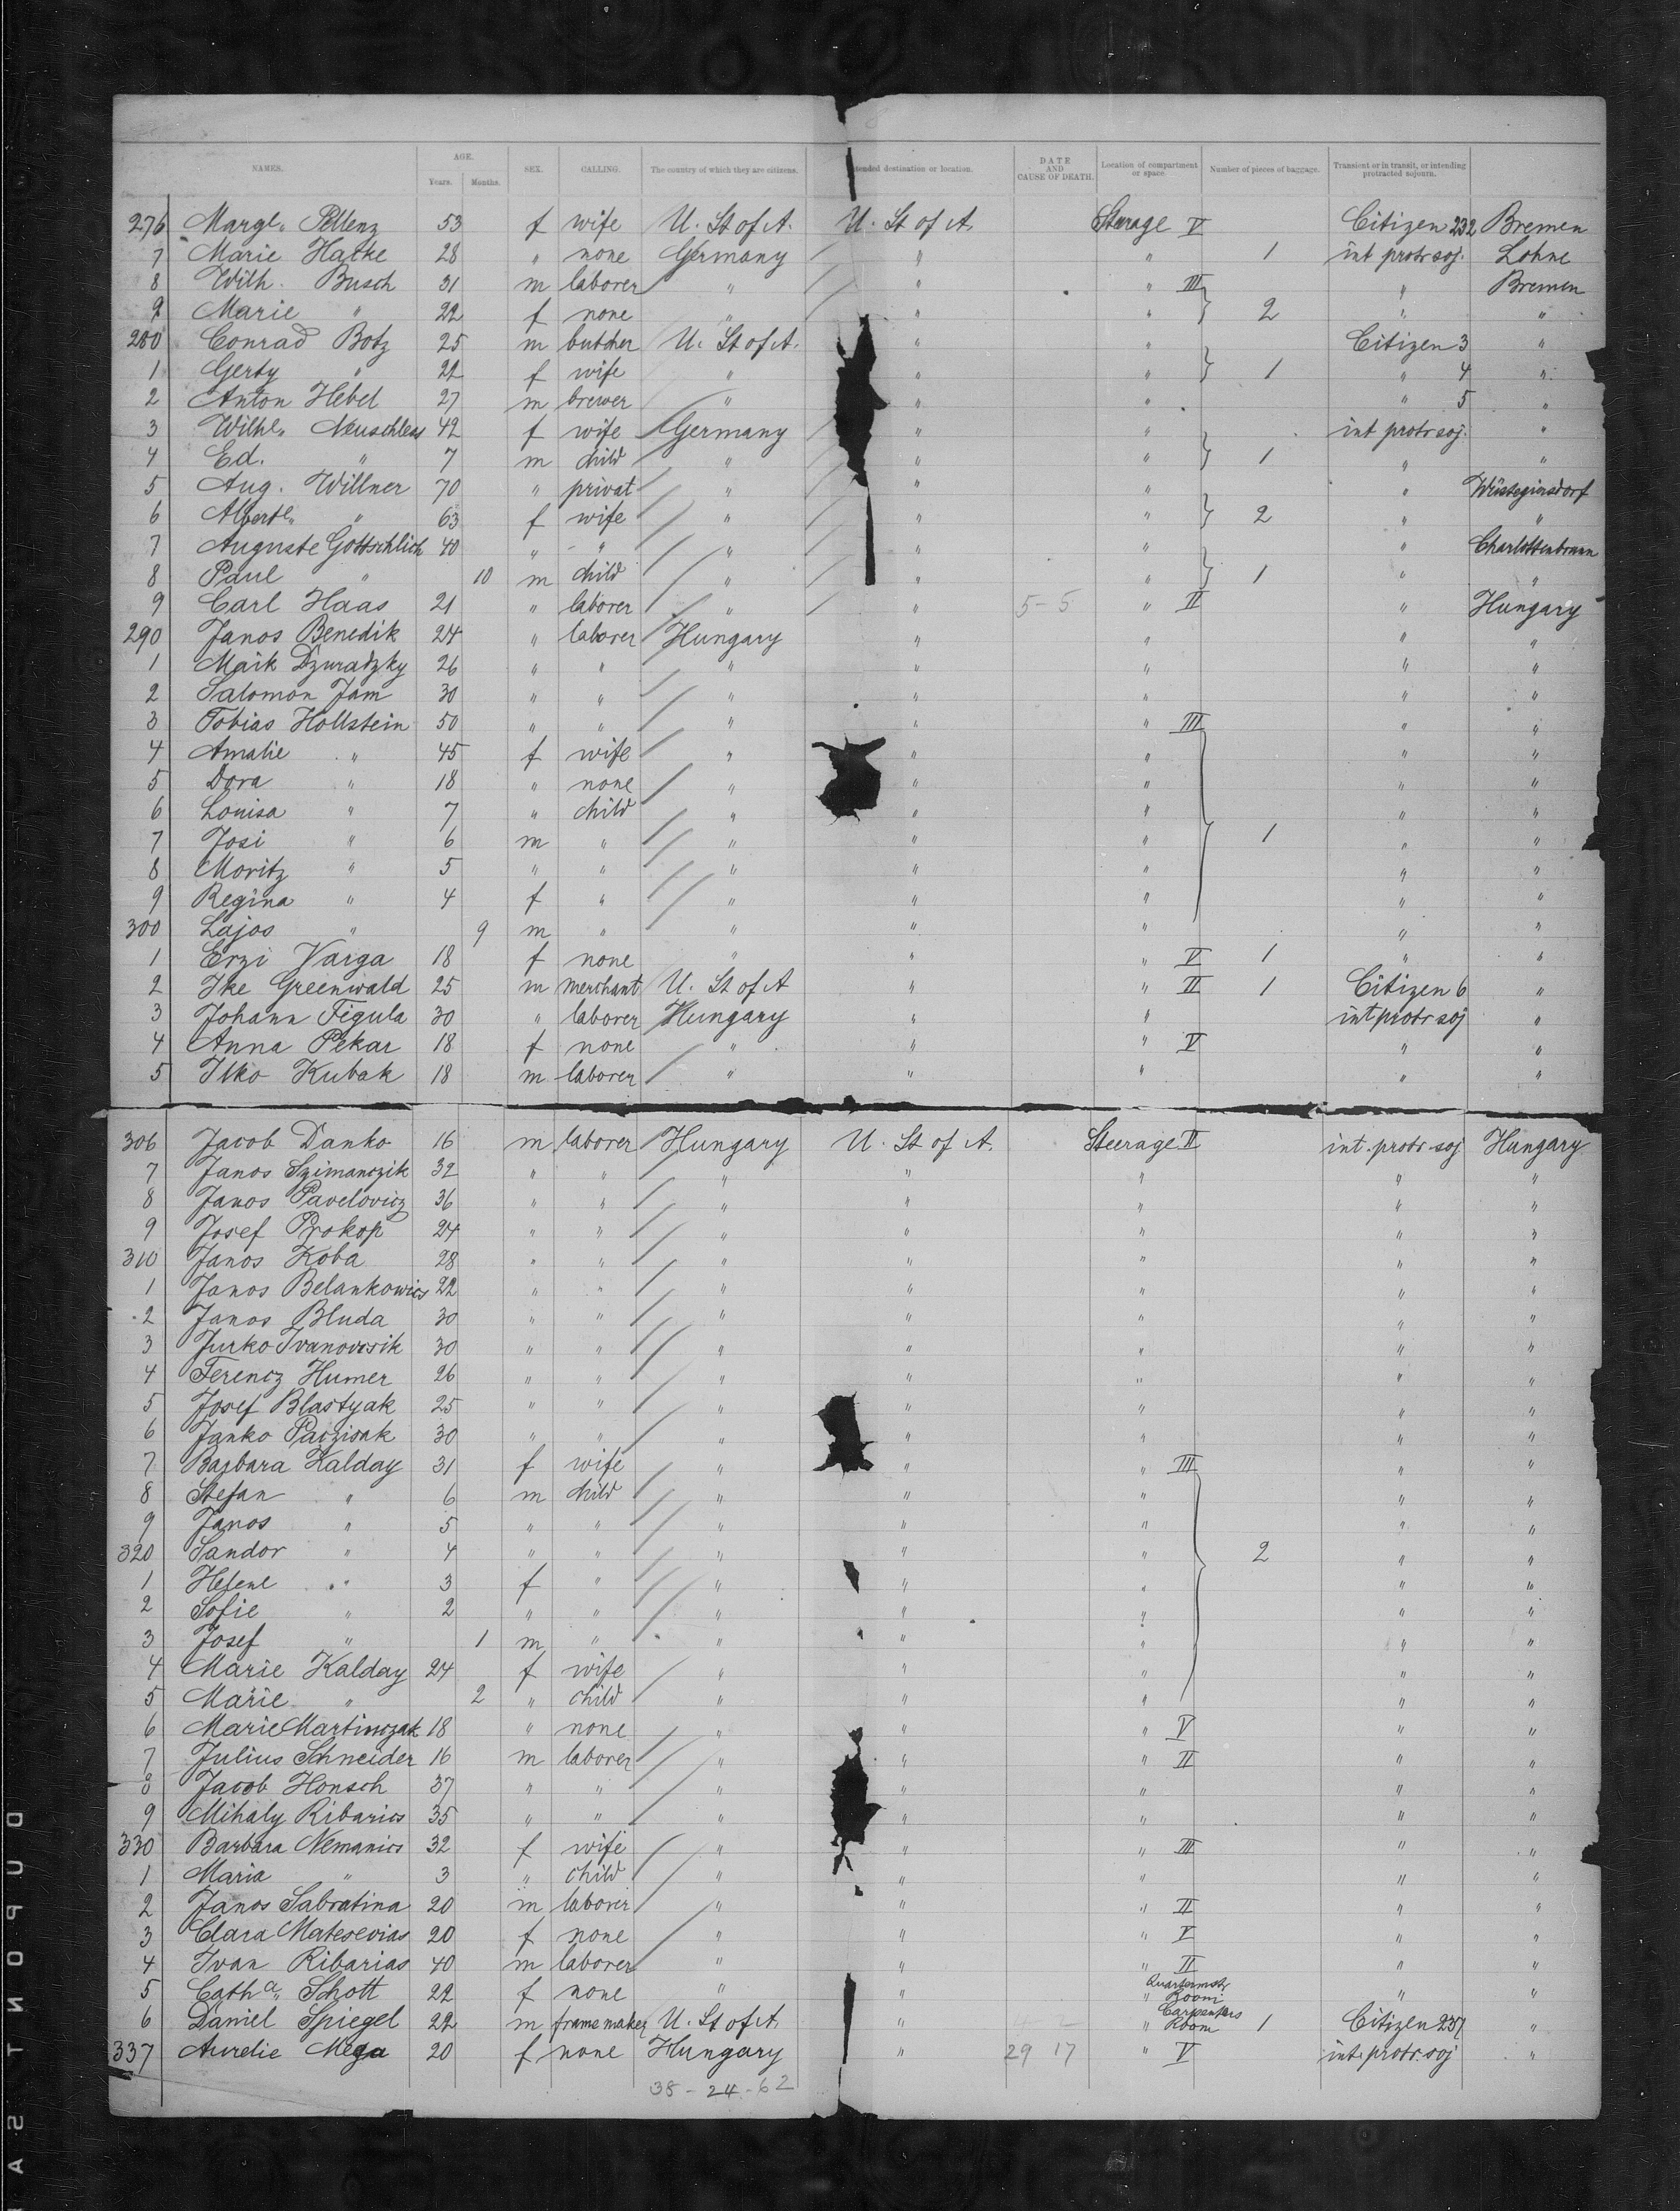 NAMES. AGE. Years. Months. SEX. CALLING. The country of which they are citizens. tended destination or location. DATE AND CAUSE OF DEATH. Location of compartment or space. Number of pieces of baggage. Transient or in transit, or intending protracted sojourn.
276 Margt. Pellenz 53 f wife U. St of A. U. St of A. Steerage V Citizen 232 Bremen
7 Marie Hatke 28 " none Germany " " 1 int protr soj. Lohne
8 Wilh. Busch 31 m laborer " " " III " Bremen
9 Marie " 22 f none " " " 2 " "
280 Conrad Botz 25 m butcher U. St of A. " " Citizen 3 "
1 Gerty " 22 f wife " " " 1 " 4 "
2 Anton Hebel 27 m brewer " " " " 5 "
3 Wilhe. Neuschless 42 f wife Germany " " int protr soj. "
4 Ed. " 7 m child " " " 1 " "
5 Aug. Willner 70 " privat " " " " Wüstegiersdorf
6 Alberte. " 63 f wife " " " 2 " "
7 Auguste Gottschlich 40 " " " " " " Charlottenbrunn
8 Paul " 10 m child " " " 1 " "
9 Carl Haas 21 " laborer " " 5-5 " II " Hungary
290 Janos Benedik 24 " laborer Hungary " " " "
1 Maik Dzuradzky 26 " " " " " " "
2 Salomon Jam 30 " " " " " " "
3 Tobias Hollstein 50 " " " " " III " "
4 Amalie " 45 f wife " " " " "
5 Dora " 18 " none " " " " "
6 Louisa " 7 " child " " " " "
7 Josi " 6 m " " " " 1 " "
8 Moritz " 5 " " " " " " "
9 Regina " 4 f " " " " " "
300 Lajos " 9 m " " " " " "
1 Erzi Varga 18 f none " " " V 1 " "
2 Ike Greenwald 25 m merchant U. St of A " " II 1 Citizen 6 "
3 Johann Figula 30 " laborer Hungary " " int protr soj "
4 Anna Pekar 18 f none " " " V " "
5 Ilko Kubak 18 m laborer " " " " "
306 Jacob Danko 16 m laborer Hungary U. St of A. Steerage II int. protr. soj Hungary
7 Janos Szimanczik 32 " " " " " " "
8 Janos Pavelovicz 36 " " " " " " "
9 Josef Prokop 24 " " " " " " "
310 Janos Koba 28 " " " " " " "
1 Janos Belankowics 22 " " " " " " "
2 Janos Bluda 30 " " " " " " "
3 Jurko Ivanovcsik 30 " " " " " " "
4 Ferencz Humer 26 " " " " " " "
5 Josef Blastyak 25 " " " " " " "
6 Janko 30 " " " " " " "
7 Barbara Kalday 31 f wife " " " III " "
8 Stefan " 6 m child " " " " "
9 Janos " 5 " " " " " " "
320 Sandor " 4 " " " " " 2 " "
1 Helene " 3 f " " " " " "
2 Sofie " 2 " " " " " " "
3 Josef " 1 m " " " " " "
4 Marie Kalday 24 f wife " " " " "
5 Marie " 2 " child " " " " "
6 Marie Martinczak 18 " none " " " V " "
7 Julius Schneider 16 m laborer " " " II " "
8 Jacob Honsch 37 " " " " " " "
9 Mihaly Ribarics 35 " " " " " " "
330 Barbara Nemanics 32 f wife " " " III " "
1 Maria " 3 " child " " " " "
2 Janos Sabratina 20 m laborer " " " II " "
3 Clara Matesevias 20 f none " " " V " "
4 Ivan Ribarias 40 m laborer " " " II " "
5 Catha. Schott 22 f none " " " Quartermstr Room " "
6 Daniel Spiegel 22 m frame maker U. St of A. " " Carpenters Room 1 Citizen 237 "
337 Aurelie Mega 20 f none Hungary " 29 17 " V int. protr. soj "
38 - 24 - 62